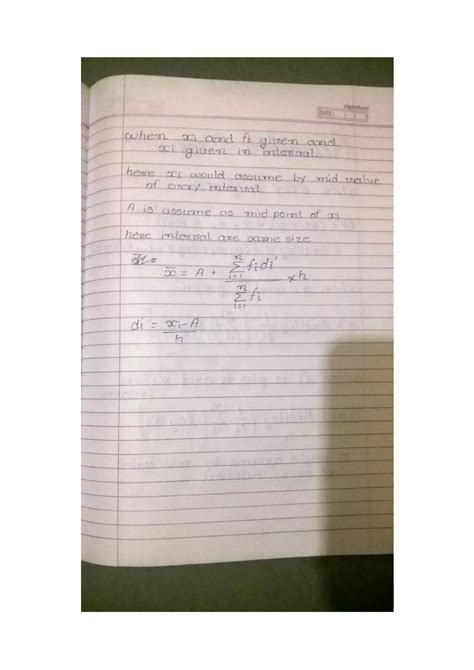 Signature
DATE: / /
when xi and fi given and
xi given in interval.
here xi would assume by mid value
of every interval
A is assume as mid point of xi
here interval are same size
x = A + \frac{\sum_{i=1}^{n} f_i d_i'}{\sum_{i=1}^{n} f_i} × h
di' = \frac{x_i - A}{h}